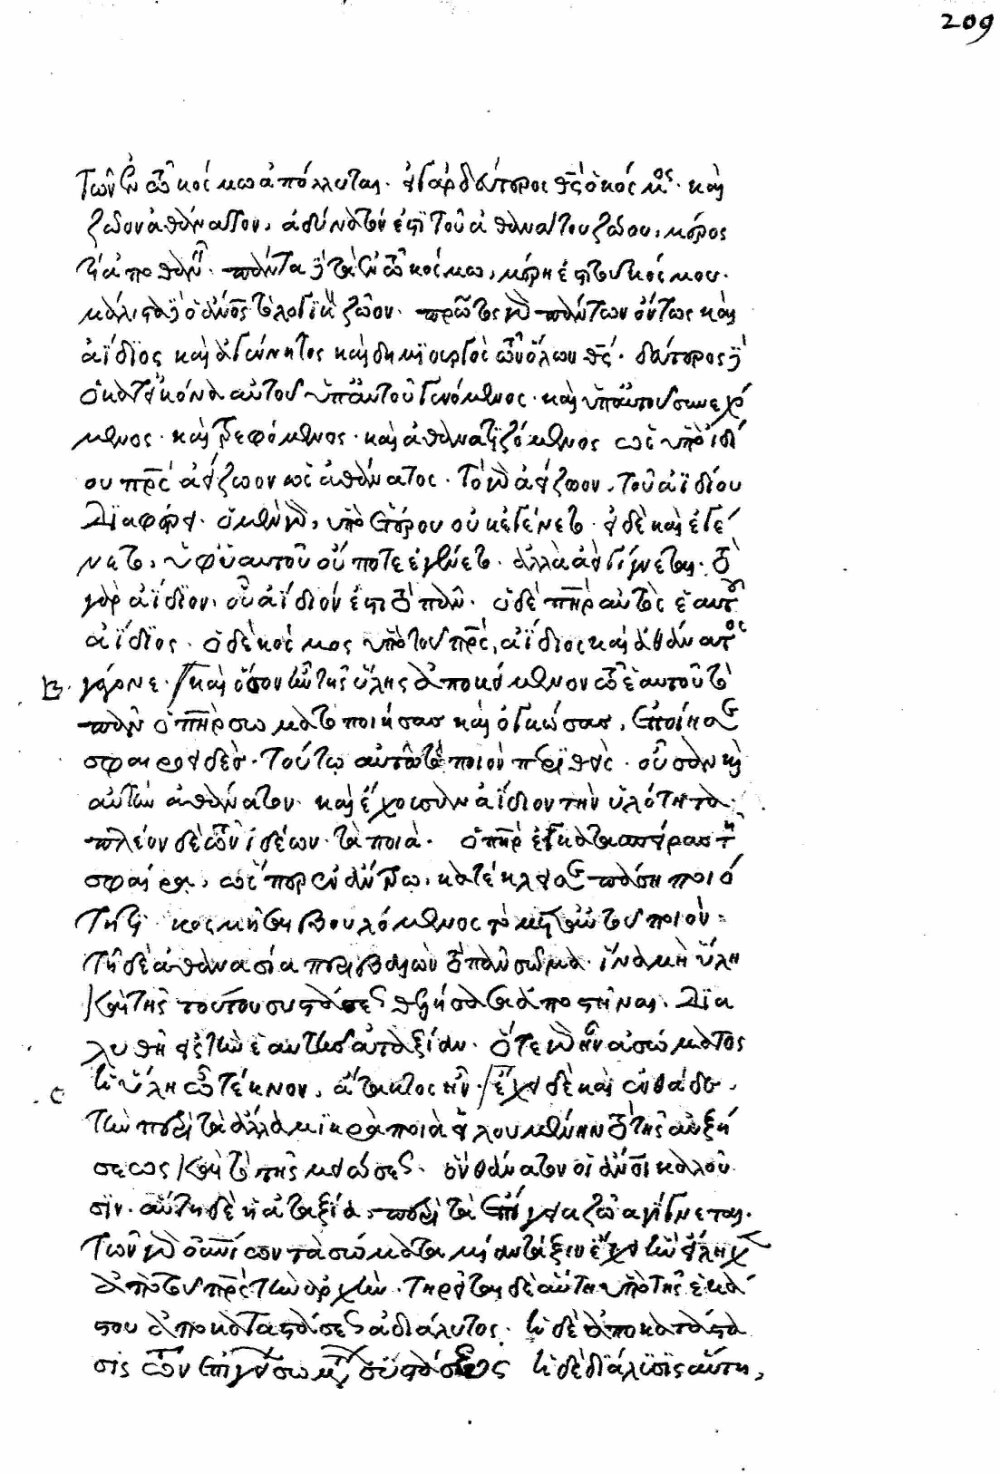 209
τῶν ἐν τῶ κόσμω ἀπόλλυται· εἰ γὰρ δεύτερος θς ὁ κόσμος· καὶ
ζῶον ἀθάνατον, ἀδύνατόν ἐστι τοῦ ἀθανάτου ζώου, μέρος
τι ἀποθανεῖν· πάντα δὲ τὰ ἐν τῶ κόσμω, μέρη ἐστι τοῦ κόσμου·
μάλιστα δὲ ὁ ἄνος τὸ λογικὸν ζῶον· πρῶτος γὰρ πάντων ὄντως καὶ
ἀίδιος καὶ ἀγέννητος καὶ δημιουργὸς τῶν ὅλων θς· δεύτερος δὲ
ὁ κατεἰκόνα αὐτοῦ ὑπαὐτοῦ γενόμενος· καὶ ὑπαὐτοῦ συνεχό
μενος· καὶ τρεφόμενος· καὶ ἀθανατιζόμενος ὡς ὑπὸ ἰδί
ου πρς ἀείζωον ὡς ἀθάνατος· τὸ γὰρ ἀείζωον, τοῦ ἀιδίου
διαφέρει· ὁ μὲν γὰρ, ὑπὸ ἑτέρου οὐκ ἐγένετο· εἰ δὲ καὶ ἐγέ
νετο, ὑφ' ἑαυτοῦ οὔποτε ἐγένετο· ἀλλὰ ἀεὶ γίνεται· τὸ
γὰρ ἀίδιον, οὗ ἀίδιόν ἐστι τὸ πᾶν· ὁ δὲ πηρ αὐτὸς ἑαυτοῦ
ἀίδιος· ὁ δὲ κόσμος ὑπὸ τοῦ πρς, ἀίδιος καὶ ἀθάνατος
Β· γέγονε· καὶ ὅσον ἦν τῆς ὕλης ἀποκείμενον τῶ ἑαυτοῦ τὸ
πᾶν ὁ πηρ σωματοποιήσας καὶ ὀγκώσας, ἐποίησε
σφαιροειδὲς· τούτω αὐτῶ τὸ ποιὸν περιθεὶς· οὖσαν καὶ
αὐτὴν ἀθάνατον· καὶ ἔχουσαν ἀίδιον τὴν ὑλότητα·
πλέον δὲ τῶν ἰδέων· τὰ ποιὰ· ὁ πηρ ἐγκατασπείρας τῆ
σφαίρα, ὥσπερ ἐν ἄντρω, κατέκλεισε πάση ποιό
τητι κοσμῆσαι βουλόμενος τὸ μεταὐτοῦ ποιὸν·
τῆ δὲ ἀθανασία περιβαλὼν τὸ πᾶν σῶμα· ἵνα μὴ ὕλη
καὶ τῆς τούτου συστάσεως θελήσασα ἀποστῆναι, δια
λυθῆ εἰς τὴν ἑαυτῆς ἀταξίαν· ὅτε γὰρ ἦν ἀσώματος
C ἡ ὕλη ὦ τέκνον, ἄτακτος ἦν· ἔχει δὲ καὶ ἐνθάδε,
τὴν περὶ τὰ ἄλλα μικρὰ ποιὰ εἰλουμένην τὸ τῆς αὐξή
σεως καὶ τὸ τῆς μειώσεως· ὃν θάνατον οἱ ἄνοι καλοῦ
σιν· αὕτη δὲ ἡ ἀταξία, περὶ τὰ ἐπίγεια ζῶα γίγνεται·
τῶν γὰρ οὐνίων τὰ σώματα μίαν τάξιν ἔχει ἣν εἴληχεν
ἀπὸ τοῦ πρς τὴν ἀρχὴν· τηρεῖται δὲ αὕτη ὑπὸ τῆς ἑκά
στου ἀποκαταστάσεως ἀδιάλυτος· ἡ δὲ ἀποκατάστα
σις τῶν ἐπιγείων σωμάτων συστάσεως ἡ δὲ διάλυσις αὕτη,